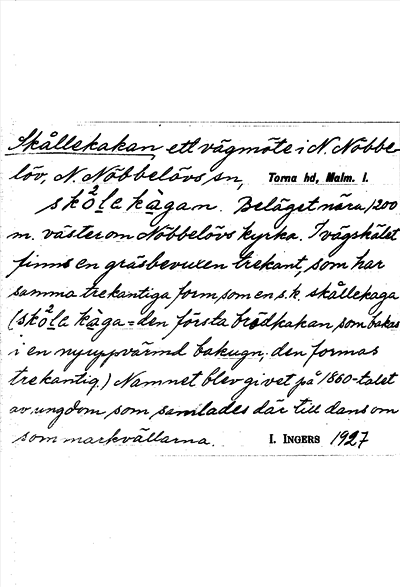 Skållekakan ett vägmöte i N. Nöbbe-
löv, N. Nöbbelövs sn, Torna hd, Malm. l.
skå2le kàgan. Beläget nära 1200
m. väster om Nöbbelövs kyrka. I vägskälet
finns en gräsbevuxen trekant, som har
samma trekantiga form, som en s.k. skållekaga
(skå2le kàga = den första brödkakan, som bakas
i en nyuppvärmd bakugn; den formas
trekantig.) Namnet blev givet på 1860-talet
av ungdom som samlades där till dans om
sommarkvällarna. I. INGERS 1927